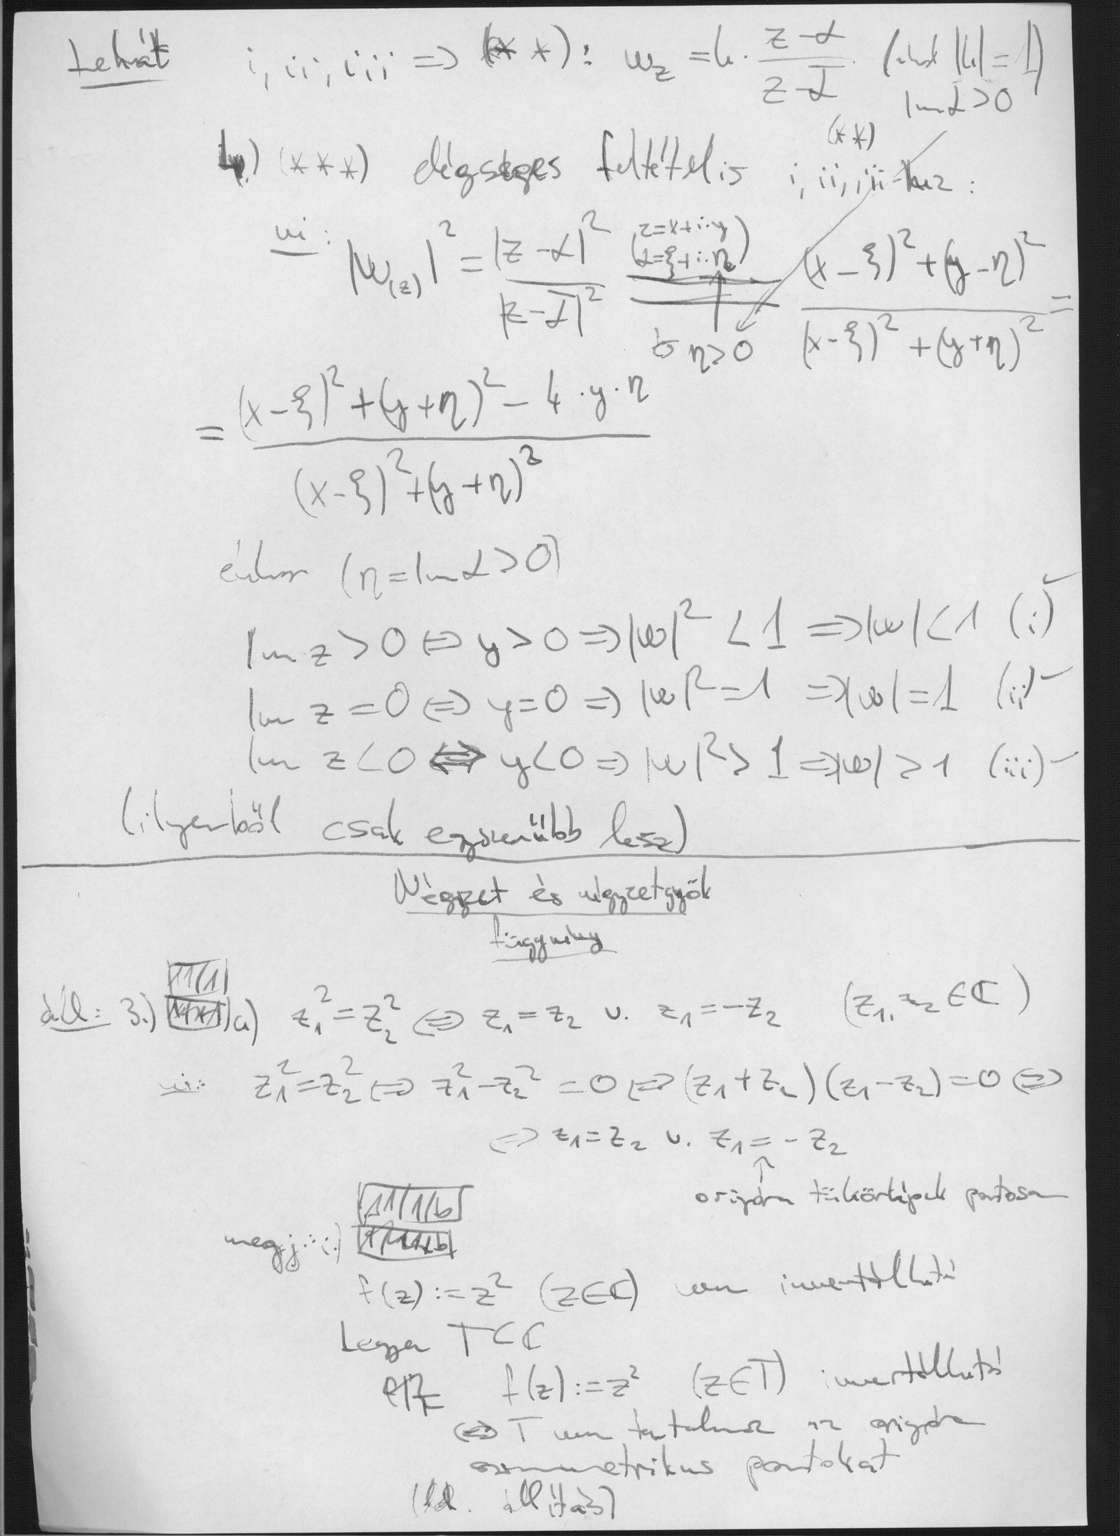 Tehát i, ii, iii ⇒ (**): w_z = k · (z-α)/(z-ᾱ) (ahol |k| = 1)
Im α > 0
4.) (***) elégséges feltétel is i, ii, iii-hoz :
(**)
ui: |w(z)|² = |z-α|²/|z-ᾱ|² (z=x+i·y α=ξ+i·η) = ((x-ξ)²+(y-η)²)/((x-ξ)²+(y+η)²) =
és η>0
= ((x-ξ)²+(y+η)²-4·y·η)/((x-ξ)²+(y+η)²)
(η = Im α > 0)
Im z > 0 ⇔ y > 0 ⇒ |w|² < 1 ⇒ |w| < 1 (i) ✓
Im z = 0 ⇔ y = 0 ⇒ |w|² = 1 ⇒ |w| = 1 (ii) ✓
Im z < 0 ⇔ y < 0 ⇒ |w|² > 1 ⇒ |w| > 1 (iii) ✓
(ilyenből csak egyszerűbb lesz)
Négyzet és négyzetgyök
függvény
áll: 3.) 11/1 a) z₁² = z₂² ⇔ z₁ = z₂ v. z₁ = -z₂ (z₁, z₂ ∈ ℂ)
ui: z₁² = z₂² ⇔ z₁² - z₂² = 0 ⇔ (z₁+z₂)(z₁-z₂) = 0 ⇔
⇔ z₁ = z₂ v. z₁ = - z₂
origóra tükörképek pontosan
11/1/b
megj.:
f(z) := z² (z∈ℂ) nem invertálható
Legyen T ⊂ ℂ
f(z) := z² (z∈T) invertálható
⇔ T nem tartalmaz az origóra
szimmetrikus pontokat
(ld. állítás)